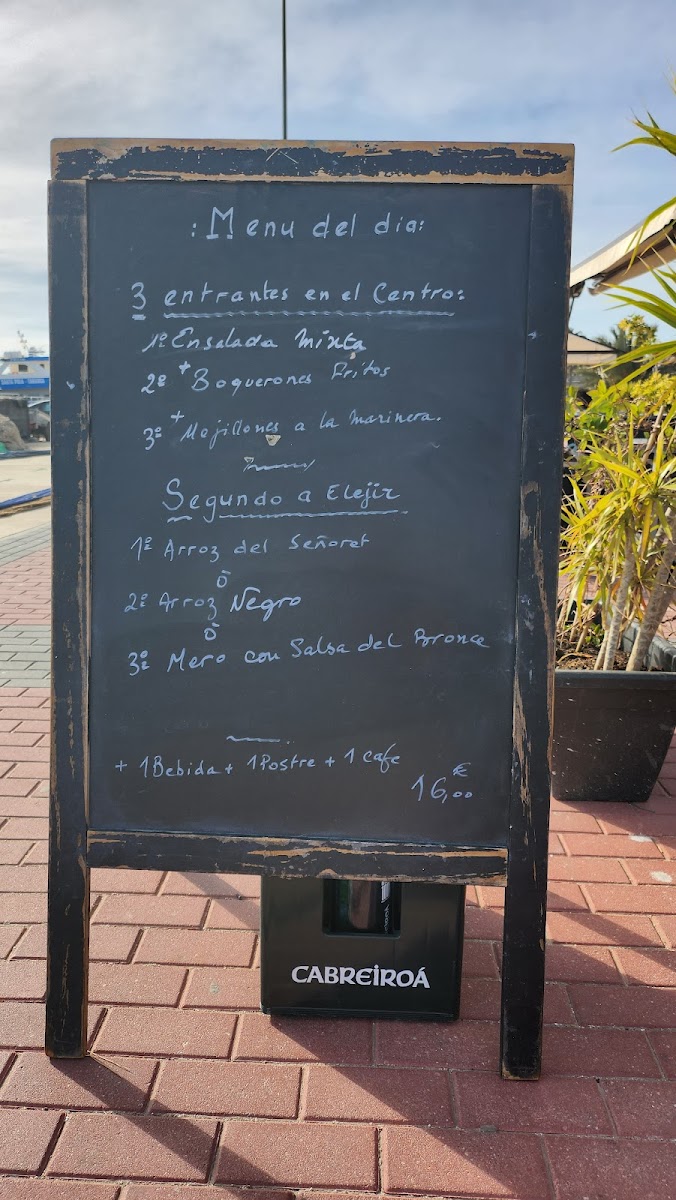 : Menu del dia:
3 entrantes en el Centro:
1º Ensalada Mixta
2º + Boquerones Fritos
3º + Mejillones a la Marinera.
Segundo a Elejir
1º Arroz del Señoret
Ò
2º Arroz Negro
Ò
3º Mero con Salsa del Bronce
+ 1Bebida + 1Postre + 1 cafe
16,00 €
CABREIROÁ